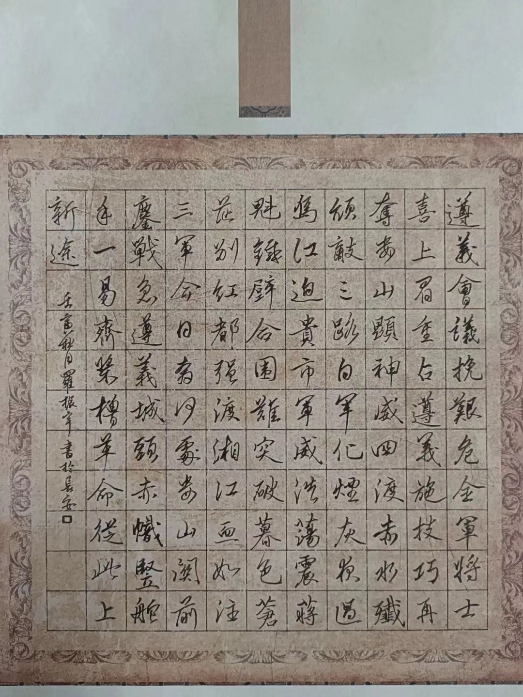 遵義會議挽艱危全軍將士
喜上眉重占遵義施技巧再
奪婁山顯神威四渡赤水殲
頑敵三路白軍化煙灰夜過
烏江迫貴市軍威浩蕩震蔣
魁鐵壁合圍難突破暮色蒼
茫別紅都強渡湘江血如注
三軍今日奔何處婁山關前
鏖戰急遵義城頭赤幟豎舵
手一易齊槳櫓革命從此上
新途
壬寅秋月羅振書於長安